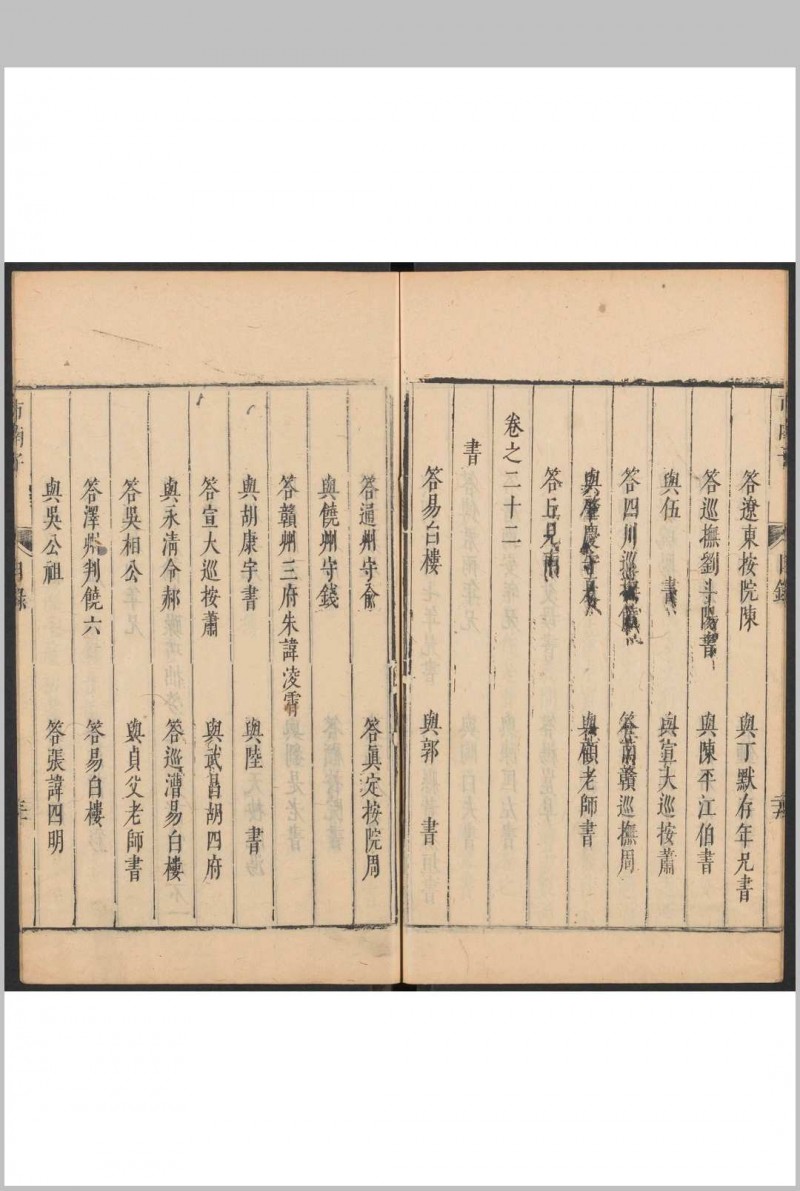 答遼東按院陳　與丁默存年兄書
答巡撫劉斗陽書　與陳平江伯書
與伍　書　與宣大巡按蕭
答四川巡　答南贛巡撫周
與肇慶守　與顧老師書
答丘兄
卷之二十二
書
答易白樓　與郭　書
答通州守俞　答真定按院周
與饒州守錢
答贛州三府朱諱凌霄
與胡康宇書　與陸　書
答宣大巡按蕭　與武昌胡四府
與永清令郝　答巡漕易白樓
答吳相公　與貞父老師書
答澤州判饒六　答易白樓
與吳公祖　答張諱四明
市南子
目錄